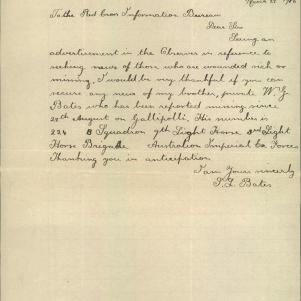 To the Red Cross Information Bureau
Dear Sirs
Seeing an
advertisement in the Observer in reference to
seeking news of those who are wounded sick or
missing. I would be very thankful if you can
secure any news of my brother, private W. G
Bates who has been reported missing since
28th August on Gallipolli. His number is
224 B Squadron 9th Light Horse 3rd Light
Horse Brigade Australian Imperial Ex Forces
Thanking you in anticipation
I am Yours sincerely
Bates